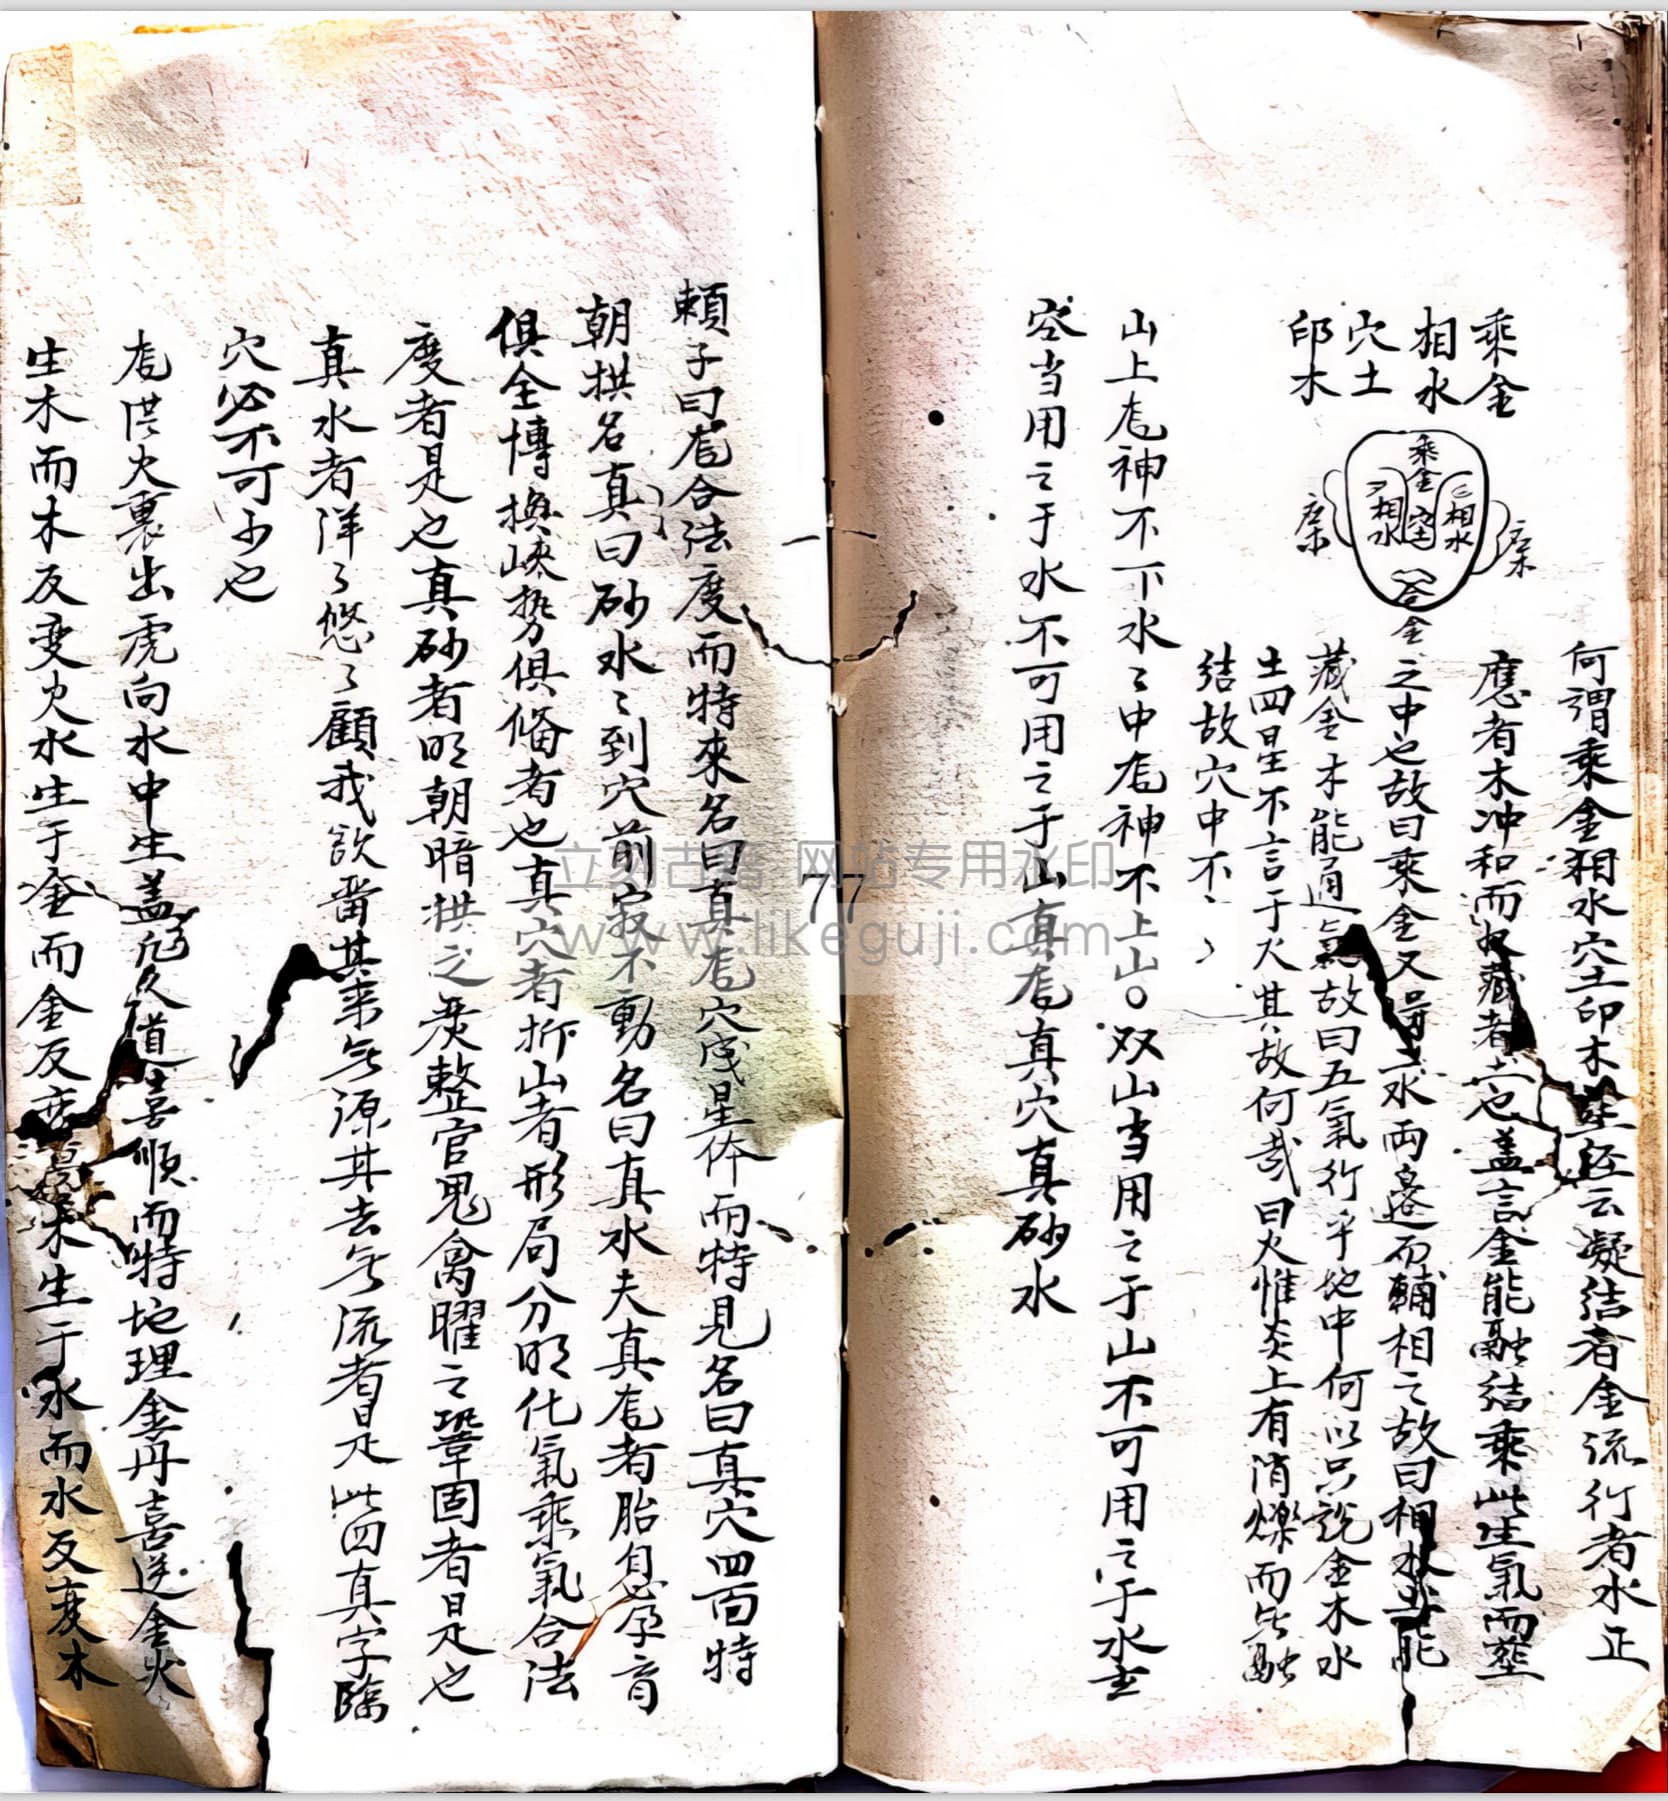 乘金
相水
穴土
印木
乘金
相水
穴土
三相水
合金
何謂乘金相水穴土印木 經云凝結者金流行者水正
應者木冲和而 藏者土也盖言金能融結乘此生氣而塟
之中也故曰乘金又 水兩邉而輔相之故曰相水 能
藏金木能通氣故曰五氣行乎地中何以只說金木水
土四星不言于火其故何哉曰火惟炎上有消爍而無融
結故穴中不
山上龙神不下水〻中龙神不上山○双山当用之于山不可用之于水
空当用之于水不可用之于山真龙真穴真砂水
頼子曰龙合法度而特來名曰真龙穴成星体而特見名曰真穴四面特
朝拱名真曰砂水〻到穴前寂不動名曰真水夫真龙者胎息孕育
俱全博換峽势俱俻者也真穴者 山者形局分明化氣乘氣合法
度者是也真砂者明朝暗拱之 整官鬼禽曜之鞏固者是也
真水者洋〻悠〻顧我欲畱其来無源其去無流者是此四真字臨
穴必不可少也
龙従火裏出虎向水中生盖 久道喜順而特地理金丹喜逆金火
生木而木反变火水生于金而金反 木生于水而水反変木
77
立刻古籍 网站专用水印
www.likeguji.com